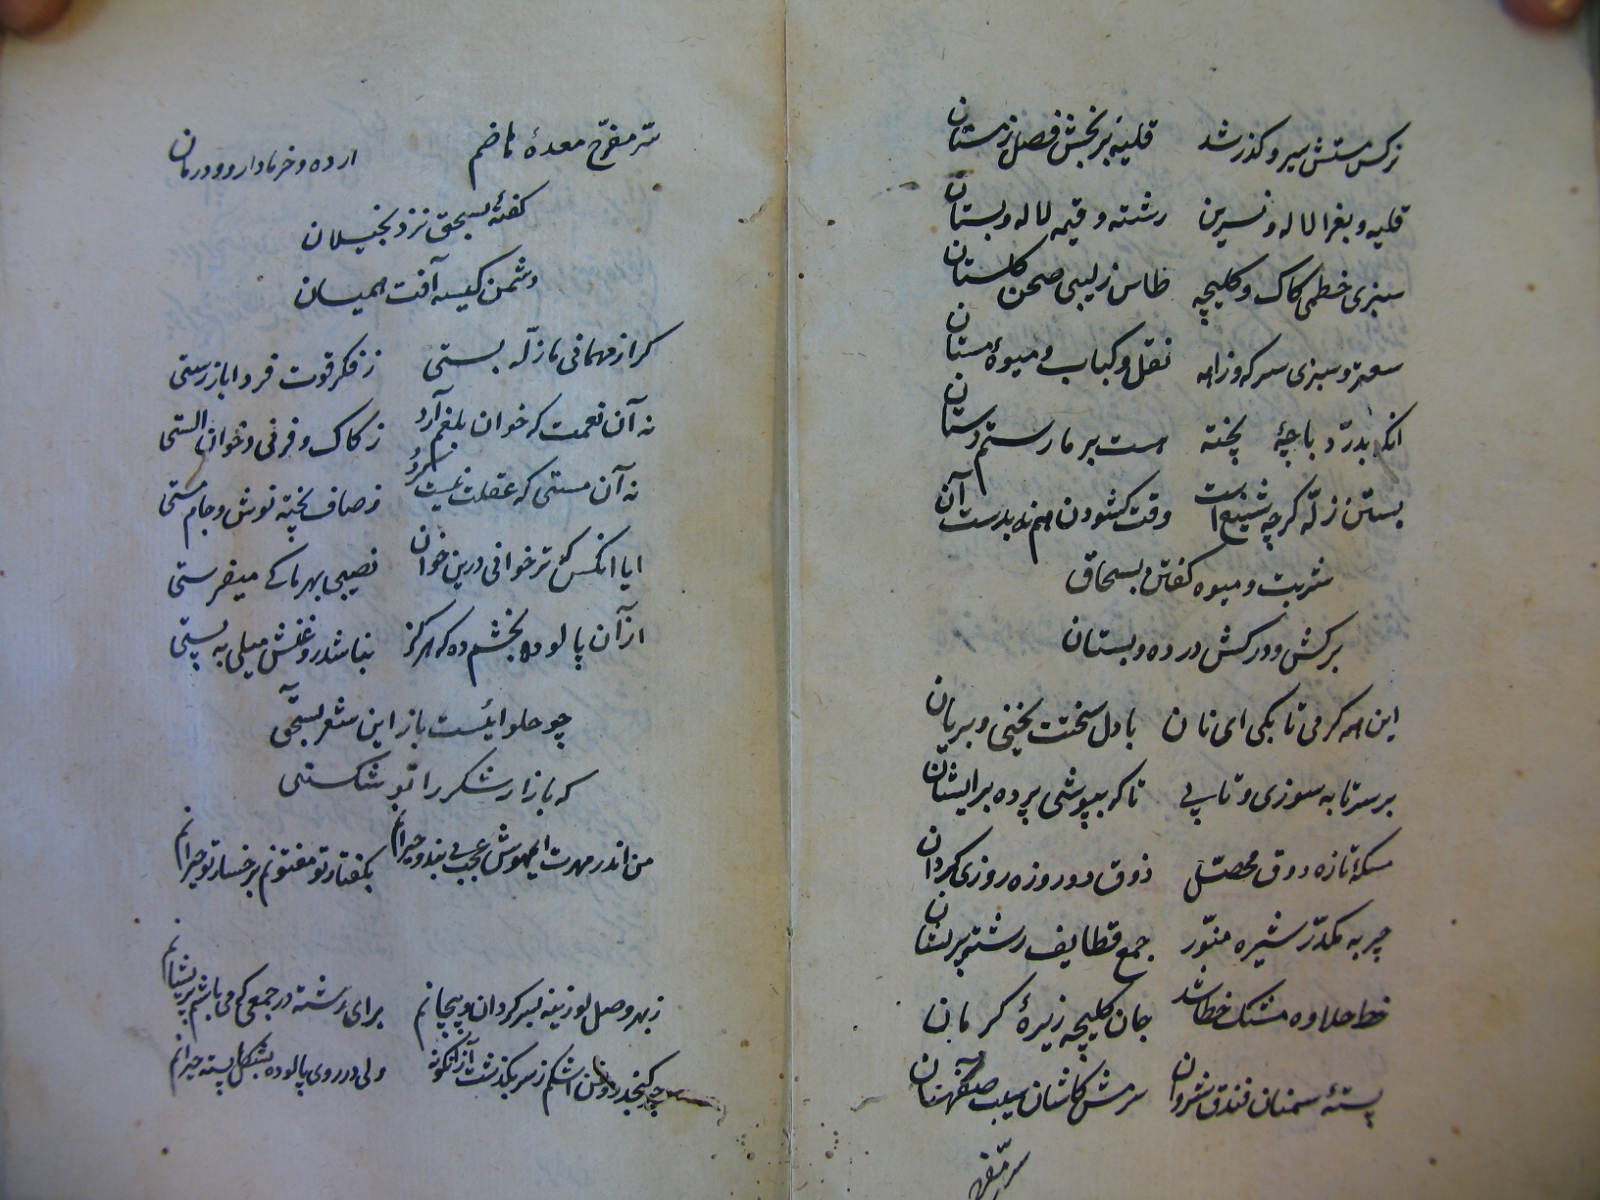 نرکس مستش سیر و کذر شد قلیه برنجش فصل زمستان
قلیه و بغرا لاله و نسرین رشته و قیمه لاله و بستان
سبزی خطمی کاک و کلیچه طاس زلیبی صحن کلستان
سعتر و سبزی سرکه و زاهه نقل و کباب و میوهٔ مستان
انکه بدرد باچهٔ پخته هست بر ما رستم دستان
بستن زله کرچه شنیع است وقت کشودن هم نه بدست آن
شربت و میوه کفتن بسحاق
برکش و درکش در ده و بستان
این همه کرمی تا بکی ای نان با دل سخت یخنی و بریان
بر سر تابه سوزی و تابی تا که بپوشی پرده برایشان
مسکهٔ تازه ذوق محصل ذوق دو روزه روزی کردان
چربه مکدر شیره منور جمع قطایف رشته پریشان
خط حلاوه مشک خطا شد جان کلیچه زیرهٔ کرمان
پستهٔ سمنان فندق شروان مشمش کاشان سیب صفاهان
سر مفرح
سر مفرح معدهٔ هاضم ارده و خرما دارو و درمان
کفتهٔ بسحق نزد بخیلان
دشمن کیسه آفت همیان
کر از مهمانی ما زله بستی ز فکر قوت فردا باز رستی
نه آن نعمت که خوان بلغم آرد ز کاک و فرنی و خوان الستی
نه آن مستی که عقلت نیست کردد ز صاف پخته نوش و جام مستی
ایا انکس کش تر خوانی درین خوان نصیبی بهر ما کی میفرستی
از آن پالوده بخشم ده که هرکز نباشد روغنش میلی به پستی
چو حلوائیست باز این شعر بسحق
که بازار شکر را تو شکستی
من اندر مهرت ای مهوش عجب بی بند و حیرانم بکفتار تو مفتونم برخسار تو حیرانم
ز بهر وصل لوزینه بسر کردان و پیچانم برای رشته در جمعی که می باشم پریشانم
چو کنجد روغن اشکم ز سر بکذشت از آنکونه ولی در روی پالوده بشکل پسته حیرانم